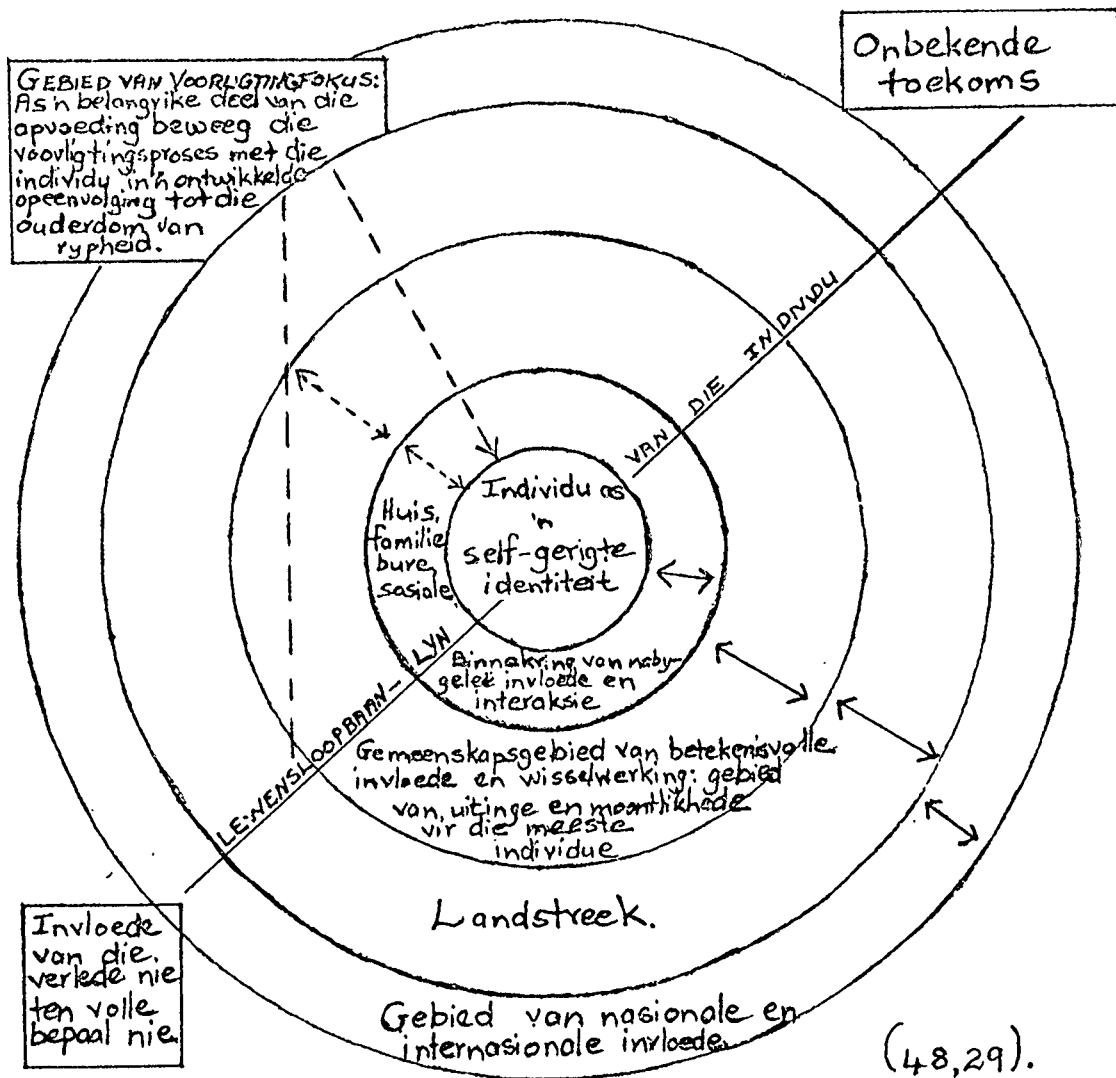 Onbekende
toekoms
GEBIED VAN VOORLIGTINGFOKUS:
As 'n belangrike deel van die
opvoeding beweeg die
voorligtingsproses met die
individu in 'n ontwikkelde
opeenvolging tot die
ouderdom van
rypheid.
LEWENSLOOPBAAN-LYN
VAN DIE INDIVIDU
Individu as
'n
self-gerigte
identiteit
Huis,
familie
bure,
sosiale,
Binnekring van naby-
geleë invloede en
interaksie
Gemeenskapsgebied van betekenisvolle
invloede en wisselwerking: gebied
van uitinge en moontlikhede
vir die meeste
individue
Landstreek.
Invloede
van die
verlede nie
ten volle
bepaal nie.
Gebied van nasionale en
internasionale invloede.
(48,29).